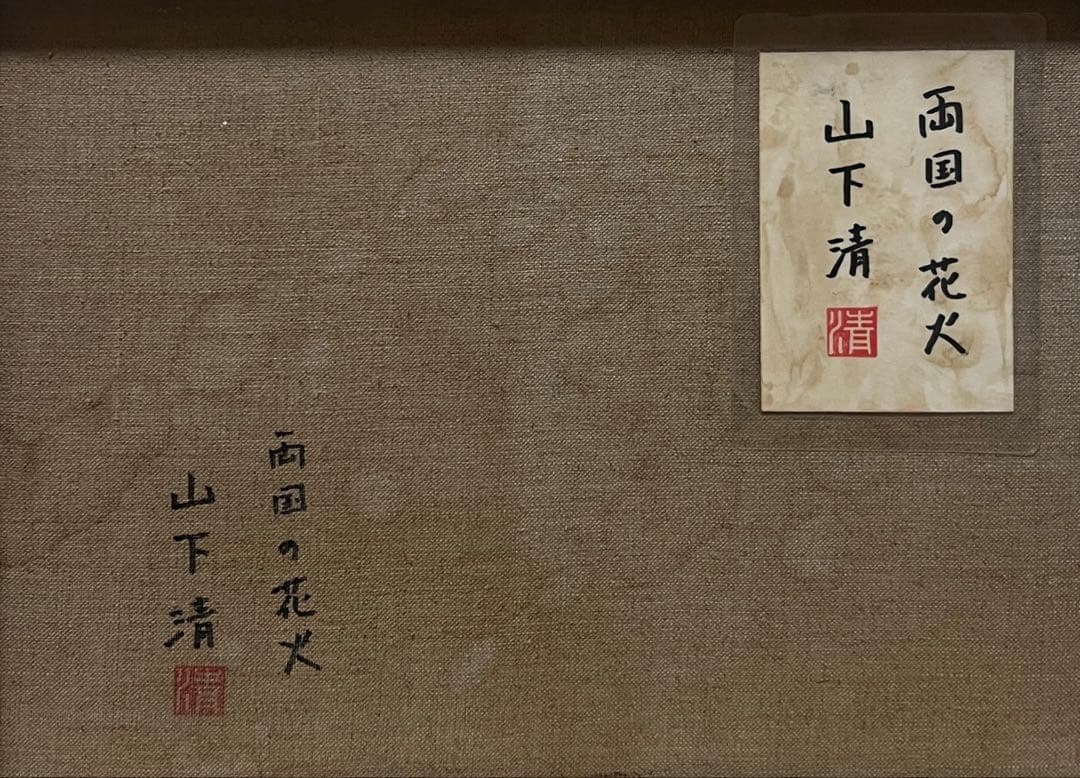 両国の花火
山下清
清
両国の花火
山下清
清